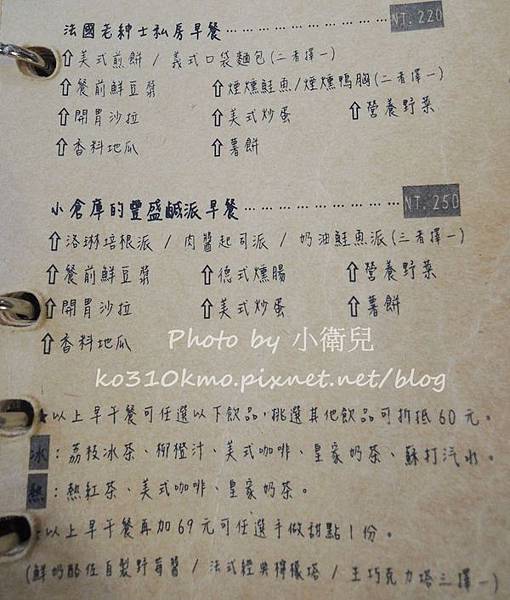 法國老紳士私房早餐………………………NT. 220
⇧美式煎餅 / 義式口袋麵包(二者擇一)
⇧餐前鮮豆漿 ⇧煙燻鮭魚/煙燻鴨胸(二者擇一)
⇧開胃沙拉 ⇧美式炒蛋 ⇧營養野菜
⇧香料地瓜 ⇧薯餅
小倉庫的豐盛鹹派早餐………………………NT. 250
⇧洛琳培根派 / 肉醬起司派 / 奶油鮭魚派(三者擇一)
⇧餐前鮮豆漿 ⇧德式燻腸 ⇧營養野菜
⇧開胃沙拉 ⇧美式炒蛋 ⇧薯餅
⇧香料地瓜
Photo by 小衛兒
ko310kmo.pixnet.net/blog
★以上早午餐可任選以下飲品,挑選其他飲品可折抵60元。
冰:荔枝冰茶、柳橙汁、美式咖啡、皇家奶茶、蘇打汽水。
熱:熱紅茶、美式咖啡、皇家奶茶。
以上早午餐再加69元可任選手做甜點1份。
(鮮奶酪佐自製野莓醬 / 法式經典檸檬塔 / 生巧克力塔三擇一)